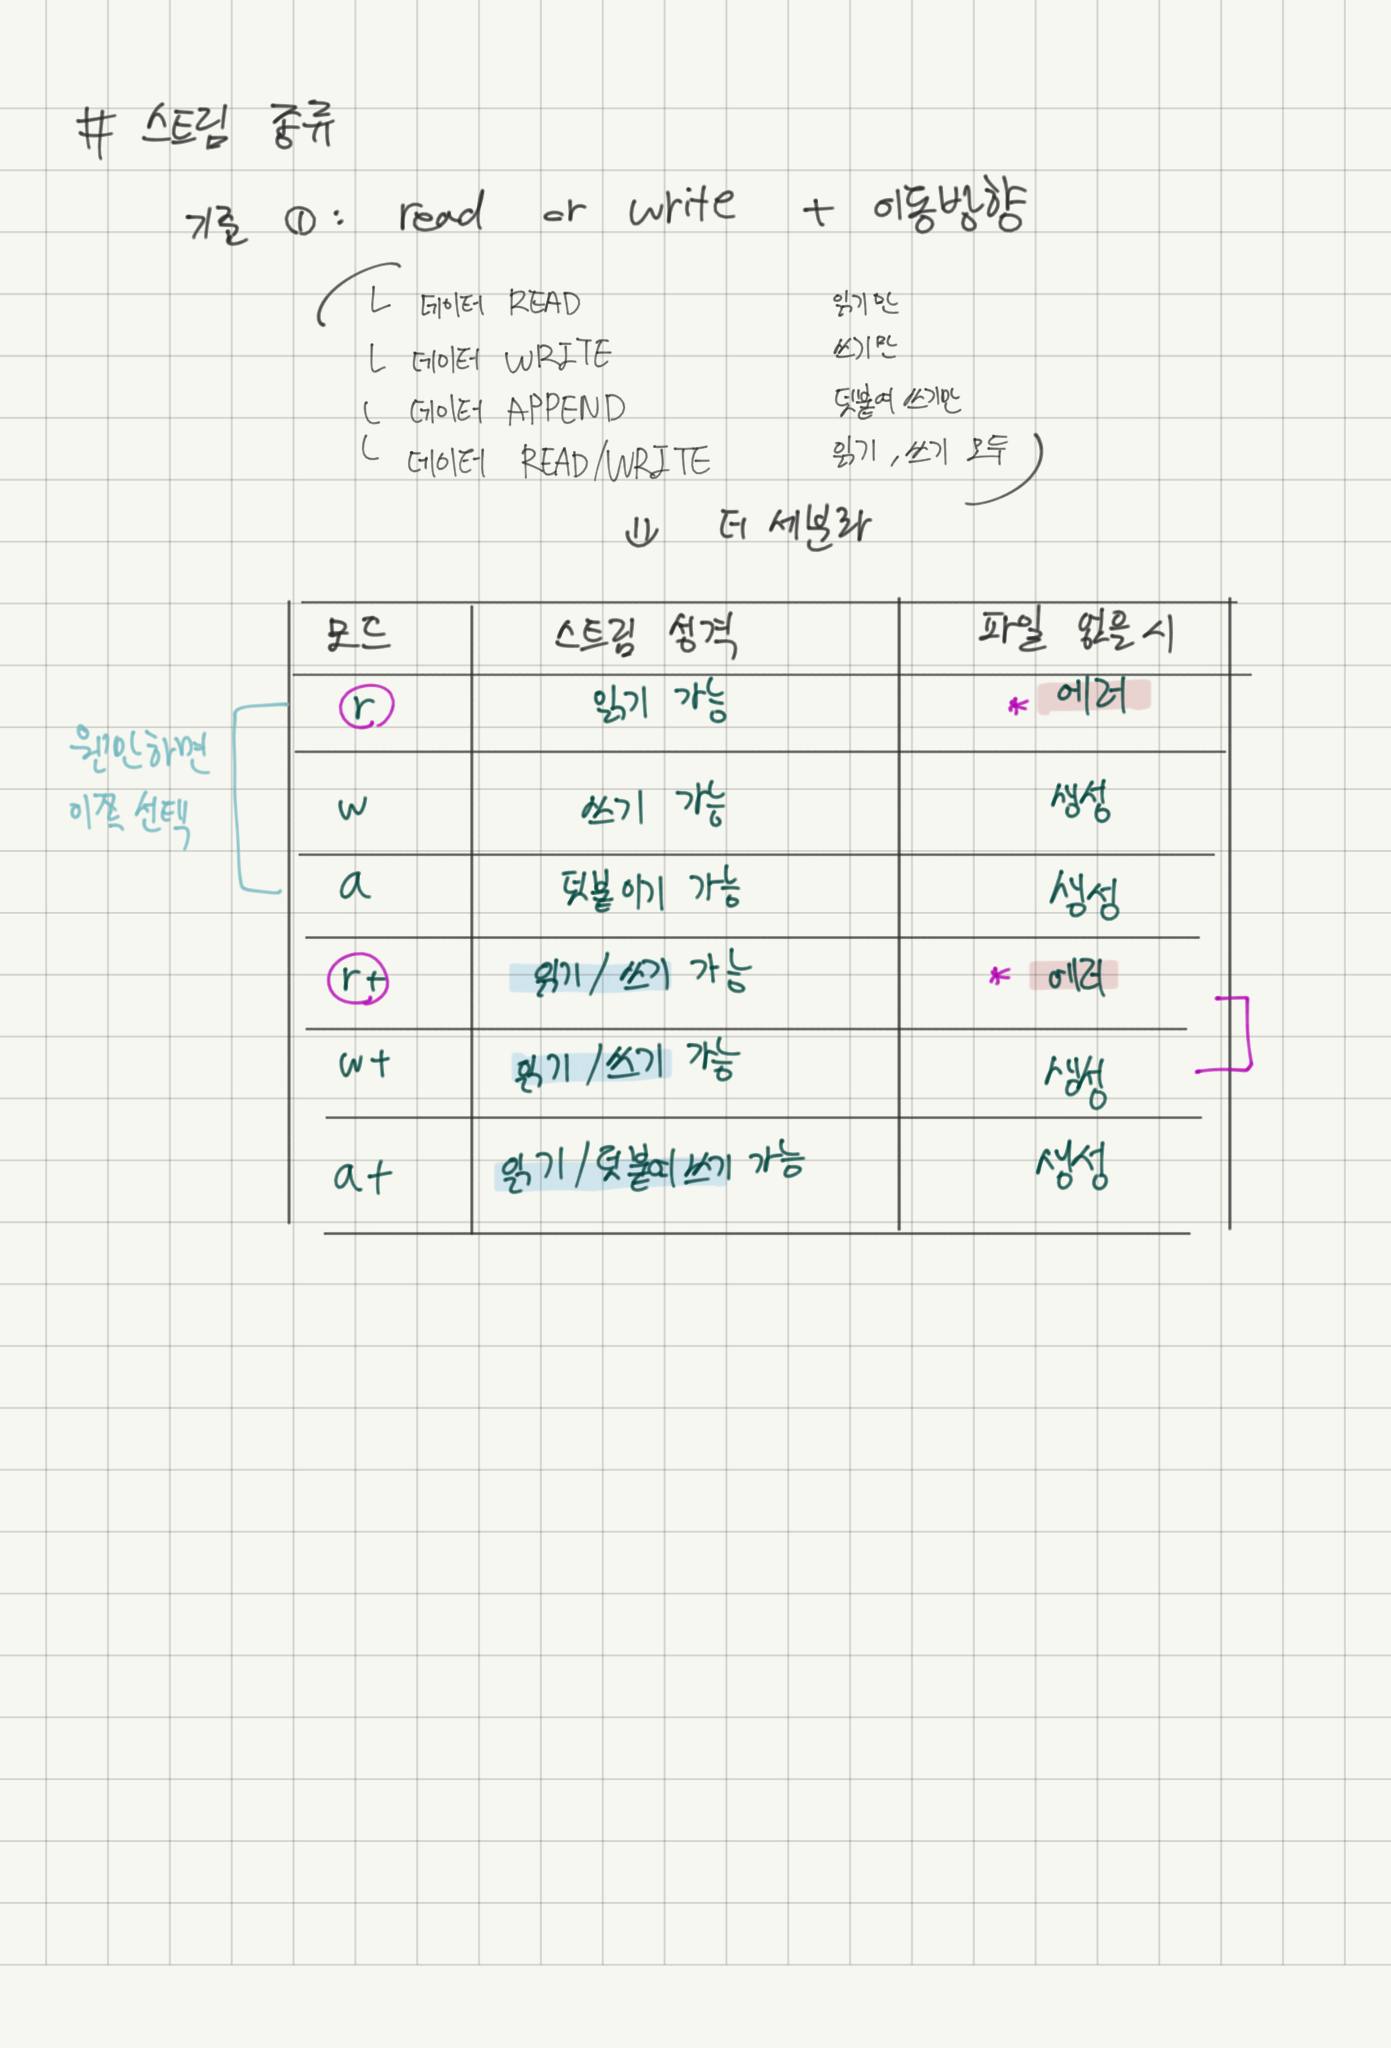 # 스트림 종류
기준 ①: read or write + 이동방향
ㄴ 데이터 READ 읽기만
ㄴ 데이터 WRITE 쓰기만
ㄴ 데이터 APPEND 덧붙여 쓰기만
ㄴ 데이터 READ/WRITE 읽기, 쓰기 모두
⇓ 더 세분화
모드 스트림 성격 파일 없을 시
r 읽기 가능 * 에러
w 쓰기 가능 생성
a 덧붙이기 가능 생성
r+ 읽기/쓰기 가능 * 에러
w+ 읽기/쓰기 가능 생성
a+ 읽기/덧붙여쓰기 가능 생성
웬만하면
이쪽 선택